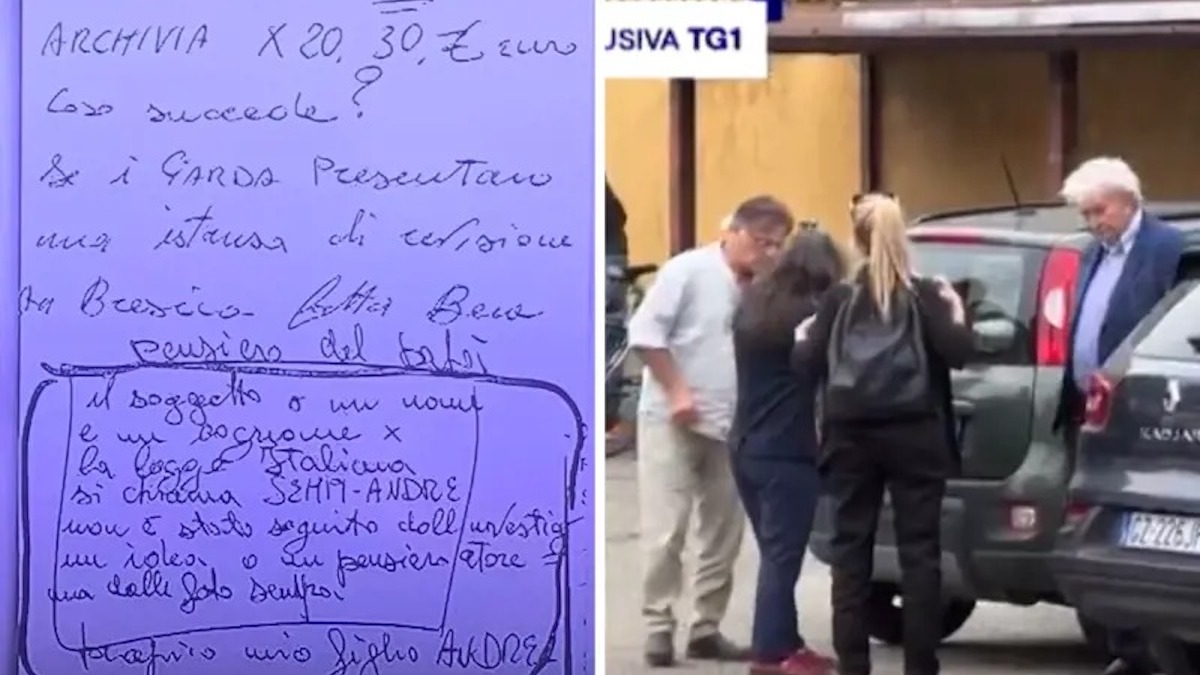 ARCHIVIA X 20. 30. € euro
Cosa succede?
Se i GARDA Presentano
una istansa di revisione
Ha Brescia fatta Bene
pensiero del
il soggetto o un nome
e un cognome x
la legge Italiana
si chiama SEMPI-ANDRE
non è stato seguito dall investig
un idea o un pensiero atore =
ma dalle foto sembra.
mio figlio ANDREA
USIVA TG1
KADJAR
GZ226J